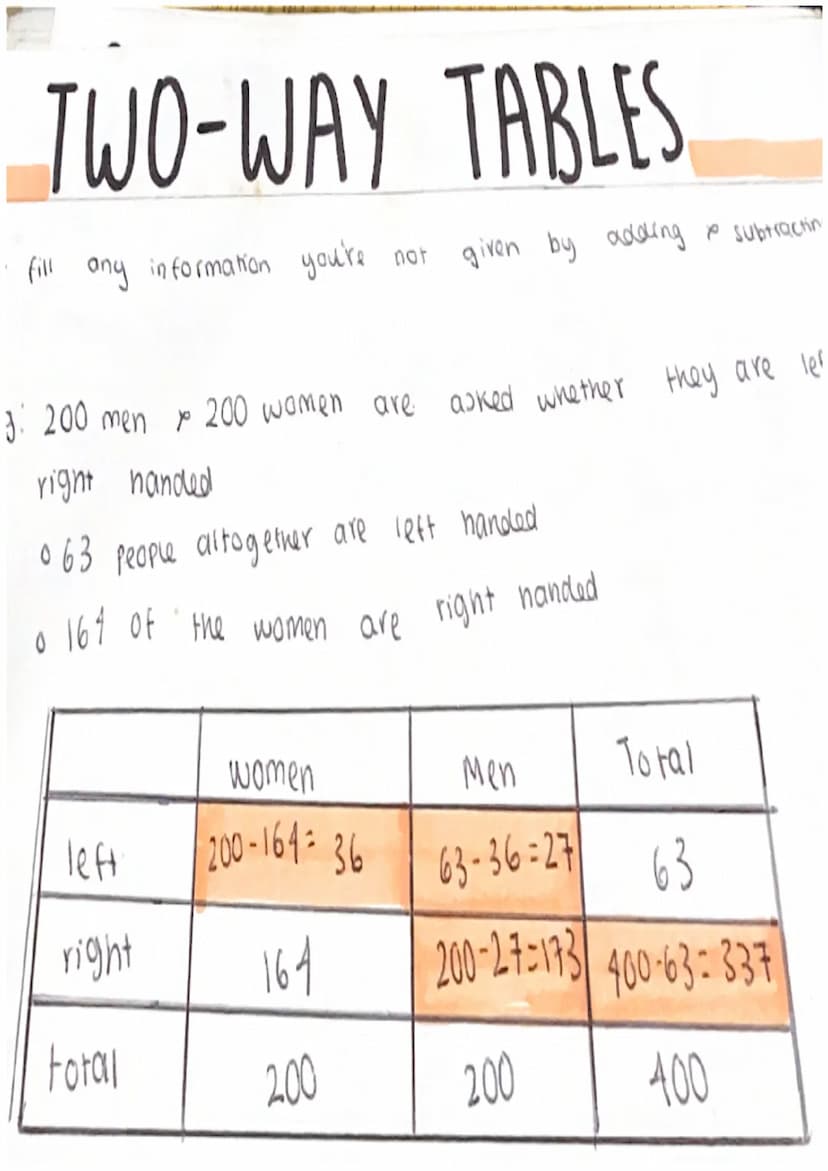 TWO-WAY TABLES
fill any information you're not given by adding & subtractin
g: 200 men & 200 women are asked whether they are lef
right handed
63 people altogether are left handed
164 of the women are right handed
women Men Total
left 200-164= 36 63-36=27 63
right 164 200-27=173 400-63=337
total 200 200 400